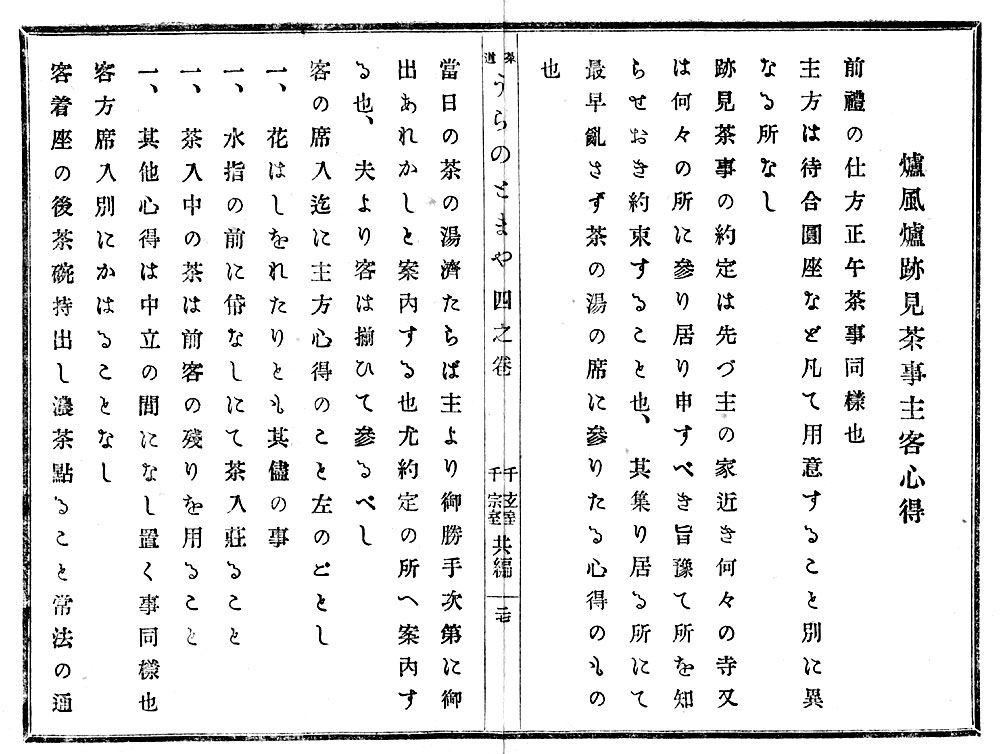 爐風爐跡見茶事主客心得
前禮の仕方正午茶事同樣也
主方は待合圓座など凡て用意すること別に異
なる所なし
跡見茶事の約定は先づ主の家近き何々の寺又
は何々の所に參り居り申すべき旨豫て所を知
らせおき約束すること也、其集り居る所にて
最早亂さず茶の湯の席に參りたる心得のもの
也
茶道
うらのとまや四之卷
千玄室
千宗室
共編
二十七
當日の茶の湯濟たらば主より御勝手次第に御
出あれかしと案内する也尤約定の所へ案内す
る也、夫より客は揃ひて參るべし
客の席入迄に主方心得のこと左のごとし
一、花はしをれたりとも其儘の事
一、水指の前に帒なしにて茶入莊ること
一、茶入中の茶は前客の殘りを用ること
一、其他心得は中立の間になし置く事同樣也
客方席入別にかはることなし
客着座の後茶碗持出し濃茶點ること常法の通